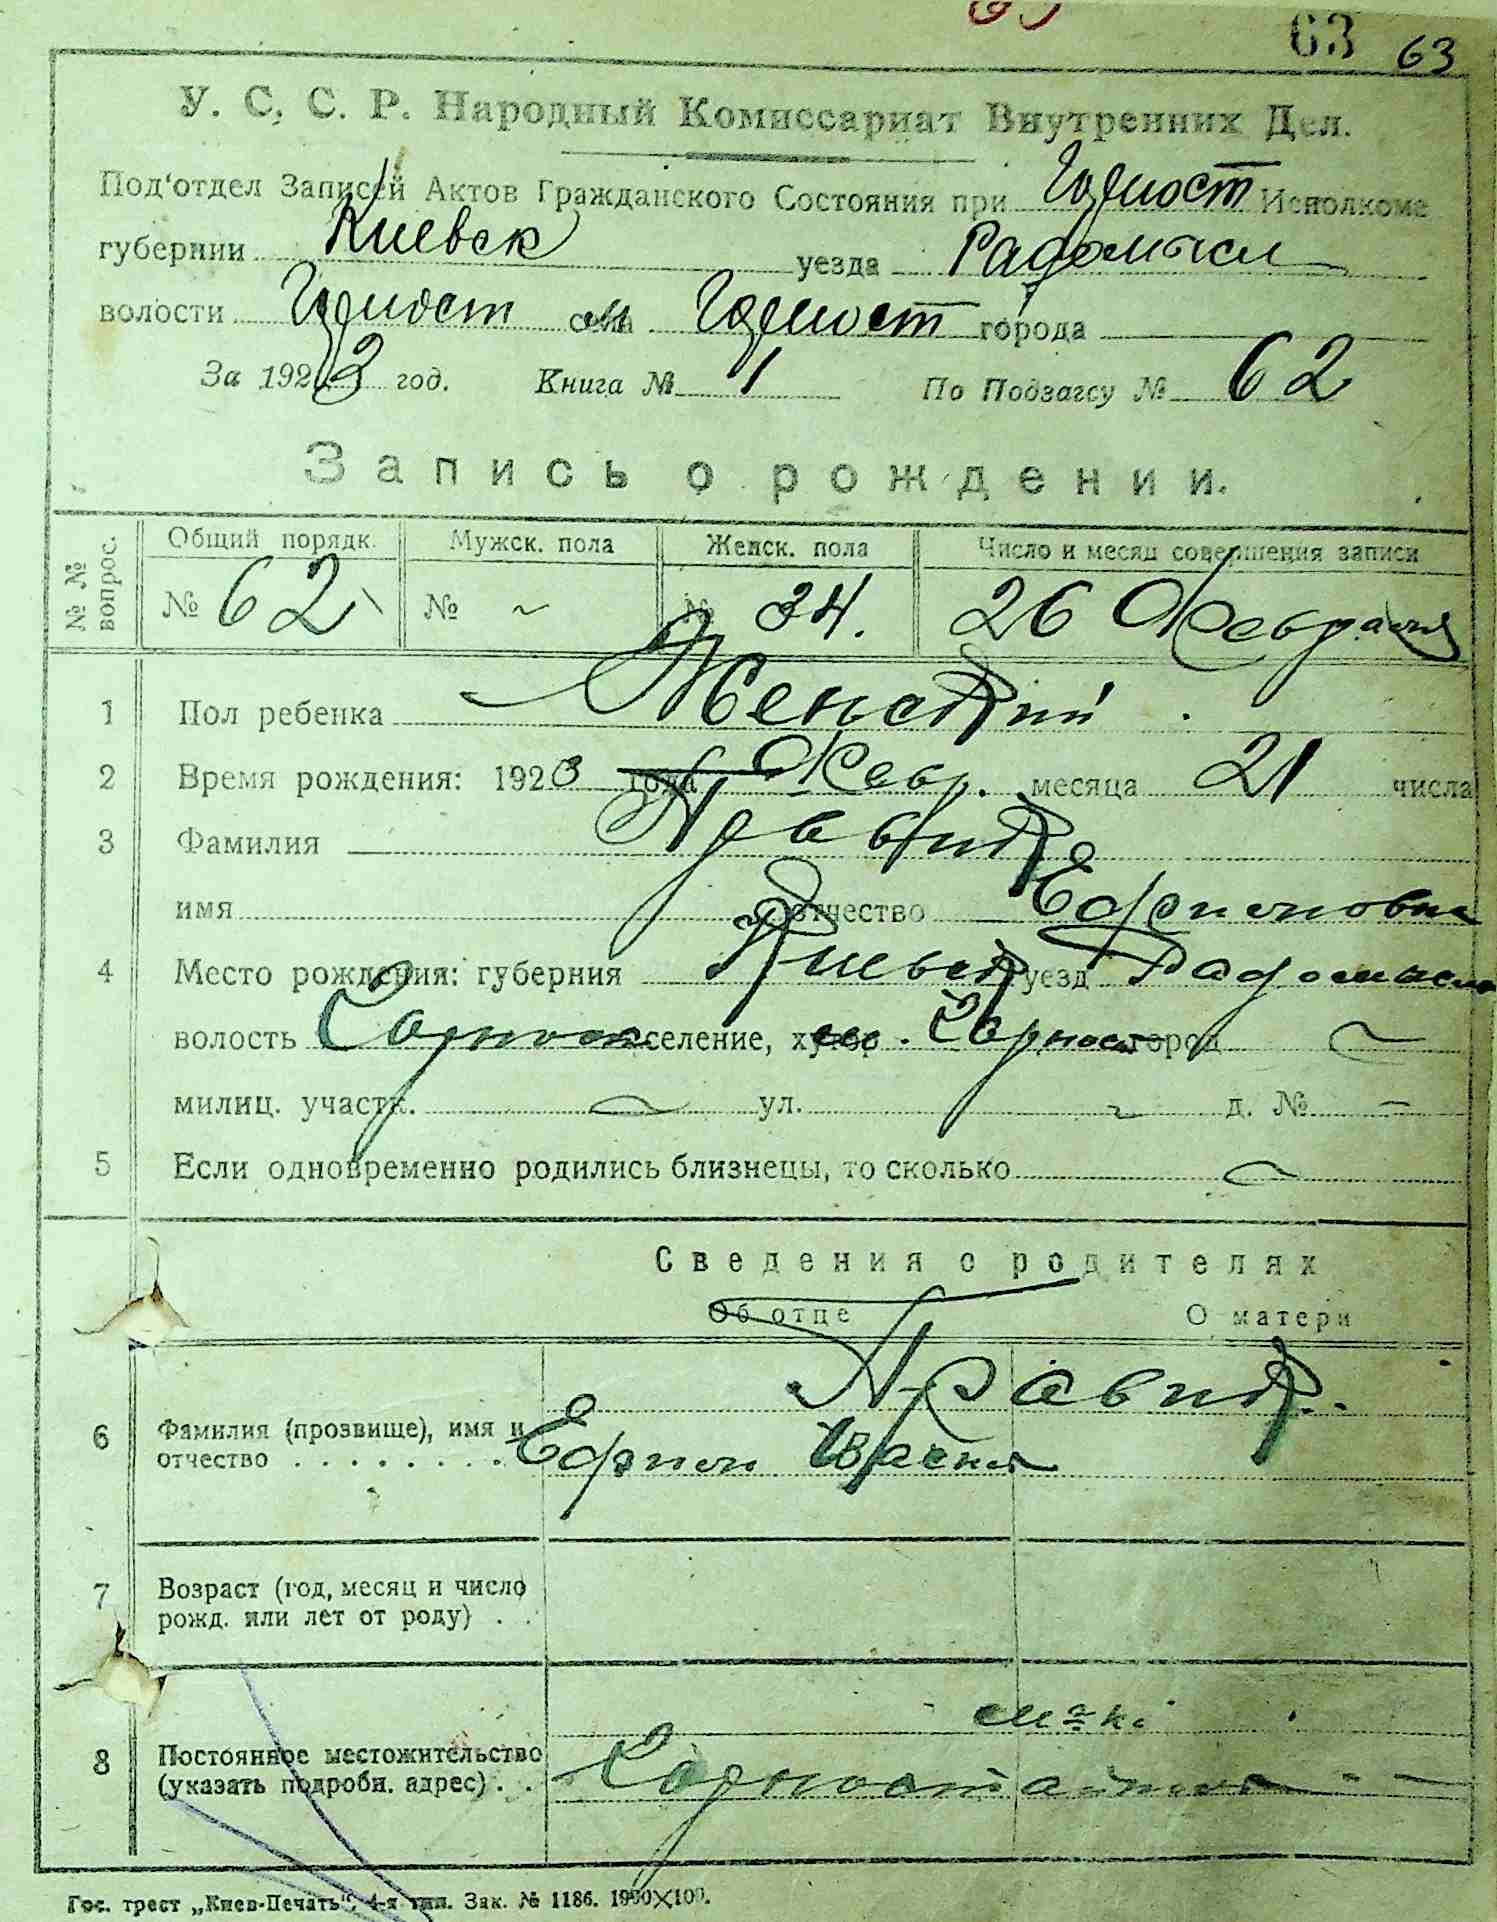 63 63
У. С. С. Р. Народный Комиссариат Внутренних Дел.
Под'отдел Записей Актов Гражданского Состояния при Горност Исполкоме
губернии Киевск уезда Радомысл
волости Горност села Горност города
За 1923 год. Книга № 1 По Подзагсу № 62
Запись о рождении.
№ № вопрос.
Общий порядк. Мужск. пола Женск. пола Число и месяц совершения записи
№ 62 № ~ № 34. 26 Февраля
1 Пол ребенка Женский
2 Время рождения: 1923 года Февр. месяца 21 числа
3 Фамилия Правик
имя отчество Ефримовна
4 Место рождения: губерния Киевск уезд Радомысл
волость Горност селение, хутор Горност город ~
милиц. участк. ~ ул. ~ д. № –
5 Если одновременно родились близнецы, то сколько ~
Сведения о родителях
Об отце О матери
Правик.
6 Фамилия (прозвище), имя и
отчество . . . . . . . . Ефрим
7 Возраст (год, месяц и число
рожд. или лет от роду) . .
м-к.
8 Постоянное местожительство
(указать подробн. адрес) . .
Гос. трест „Киев-Печать", 4-я тип. Зак. № 1186. 1900×100.